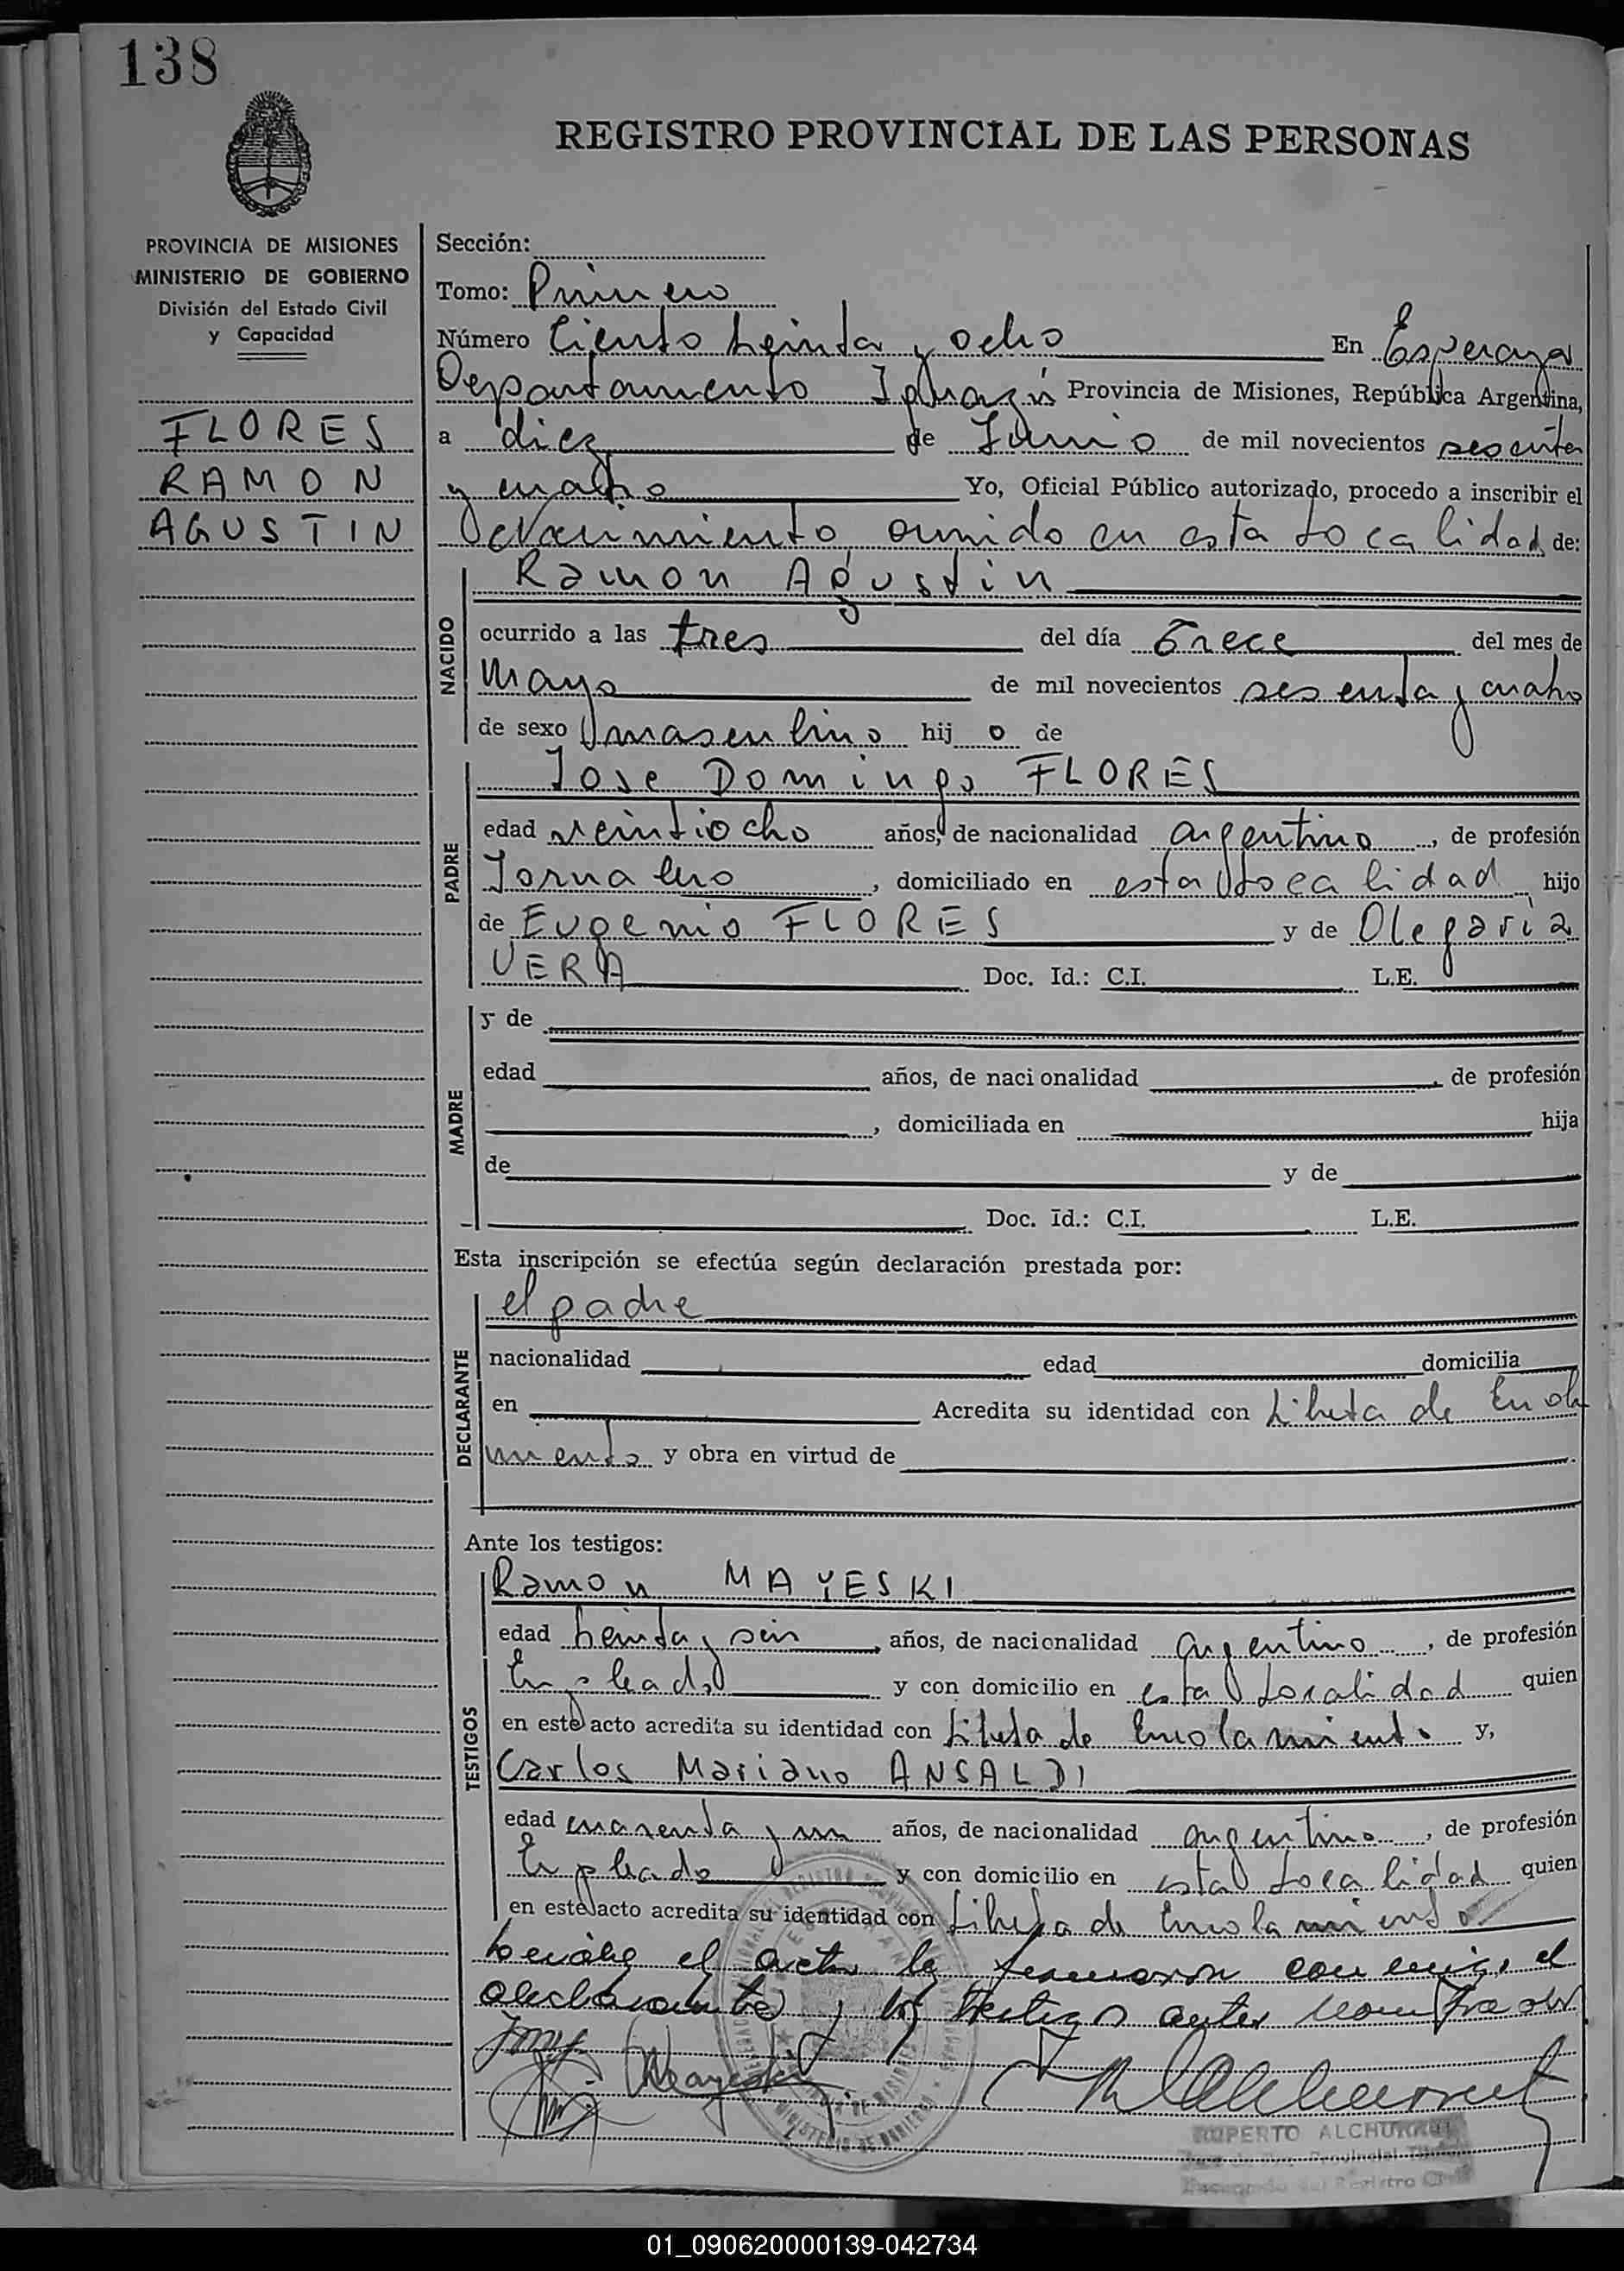 138
REGISTRO PROVINCIAL DE LAS PERSONAS
PROVINCIA DE MISIONES
MINISTERIO DE GOBIERNO
División del Estado Civil
y Capacidad
FLORES
RAMON
AGUSTIN
Sección:
Tomo: Primero
Número Ciento treinta y ocho En Esperanza
Departamento Iguazú Provincia de Misiones, República Argentina,
a diez de Junio de mil novecientos sesenta
y cuatro Yo, Oficial Público autorizado, procedo a inscribir el
Nacimiento ocurrido en esta localidad de:
NACIDO
Ramon Agustin
ocurrido a las tres del día trece del mes de
Mayo de mil novecientos sesenta y cuatro
de sexo masculino hij o de
PADRE
Jose Domingo FLORES
edad veintiocho años, de nacionalidad argentino, de profesión
Jornalero, domiciliado en esta localidad hijo
de Eugenio FLORES y de Olegaria
VERA Doc. Id.: C.I. L.E.
MADRE
y de
edad años, de naci onalidad , de profesión
, domiciliada en hija
de y de
Doc. Id.: C.I. L.E.
Esta inscripción se efectúa según declaración prestada por:
DECLARANTE
el padre
nacionalidad edad domicilia
en Acredita su identidad con Libreta de Enrola
miento y obra en virtud de
Ante los testigos:
TESTIGOS
Ramon MAYESKI
edad treinta y seis, años, de nacionalidad argentino, de profesión
Empleado y con domicilio en esta localidad quien
en este acto acredita su identidad con Libreta de Enrolamiento y,
Carlos Mariano ANSALDI
edad cuarenta y un años, de nacionalidad argentino, de profesión
Empleado y con domicilio en esta localidad quien
en este acto acredita su identidad con Libreta de Enrolamiento
el acta la firmaron conmigo el
declarante y los testigos antes
RUPERTO
01_090620000139-042734